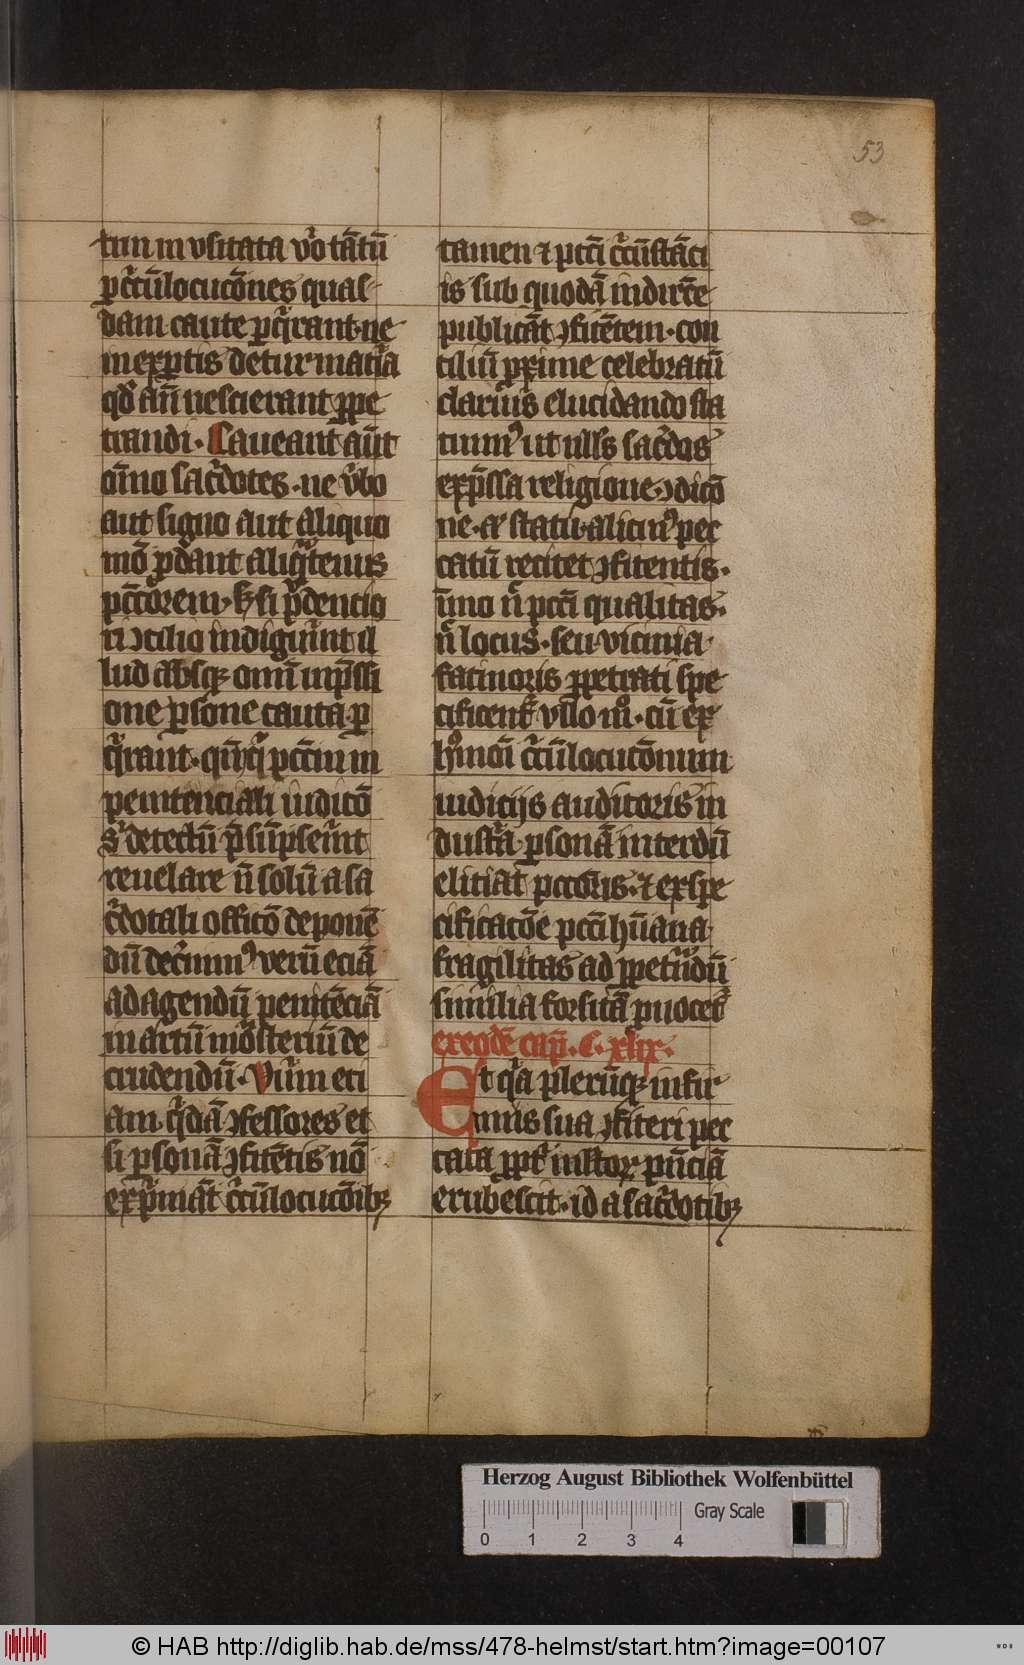 53
tim inusitata vo᷒ tātū
ꝑ c̓cūlocuc̄ones quas
dam caute ꝑq̓rant· ne
inexꝑtis detur mat̓ia
qd̄ añ nescierant ꝑpe
trandi· Caueant aūt
om̄no sac̓dotes· ne v̓bo
aut signo aut aliquo
mō ꝓdant aliq̓tenus
pcc̄orem· ꝫ si p̓dencio
ri ꝯcilio indigu̓int il
lud absqꝫ omī inp̄ssi
one ꝑsone caute ꝑ
q̓rant· qm̄ q̓ pcc̄m in
penitenciali iudic̄o
s᷒ detectū p̄sūpseri̓nt
reuelare nō solū a sa
c̓dotali offic̄o deponē
dū dec̓nimꝰ verū eciā
ad agendū penitēciā
in artū mōsteriū de
trudendū· Viu̓m eti
am q̓dā ꝯfessores et
si ꝑsonā ꝯfitētis nō
exp̓māt c̓cūlocuc̄oibꝫ
tamen ⁊ pcc̄i c̓cūstāci
is sub quodā indirc̄e
publicāt ꝯfitētem· con
ciliū ꝓxime celebratū
clariusꝰ elucidando sta
tuimꝰ ut nll᷒s sac̓dos
exp̄ssa religione ꝯdic̄o
ne· a᷒ statu alicuiꝰ pec
catū recitet ꝯfitentis·
īmo n̄ pcc̄i qualitas·
n̄ locus· seu vicinia·
facinoris ꝑpetrati spe
cificent᷒ ullo mō· cū ex
hꝰmōi c̓cūlocuc̄onum
indicijs auditoris in
dust̓a ꝑsonā interdū
eliciat pcc̄oris· ⁊ ex spe
cificac̄oe pcc̄i hūana
fragilitas ad ꝑpet̓ndū
similia forsitā ꝓuocet᷒
ex eodē cap̄· C· xlix·
Et q̓a plerūqꝫ infir
mus sua ꝯfiteri pec
cata ꝓpt̓ iniūctoꝝ pn̄ciā
erubescit· id a sac̓dotibꝫ
Herzog August Bibliothek Wolfenbüttel
0 1 2 3 4
Gray Scale
© HAB http://diglib.hab.de/mss/478-helmst/start.htm?image=00107